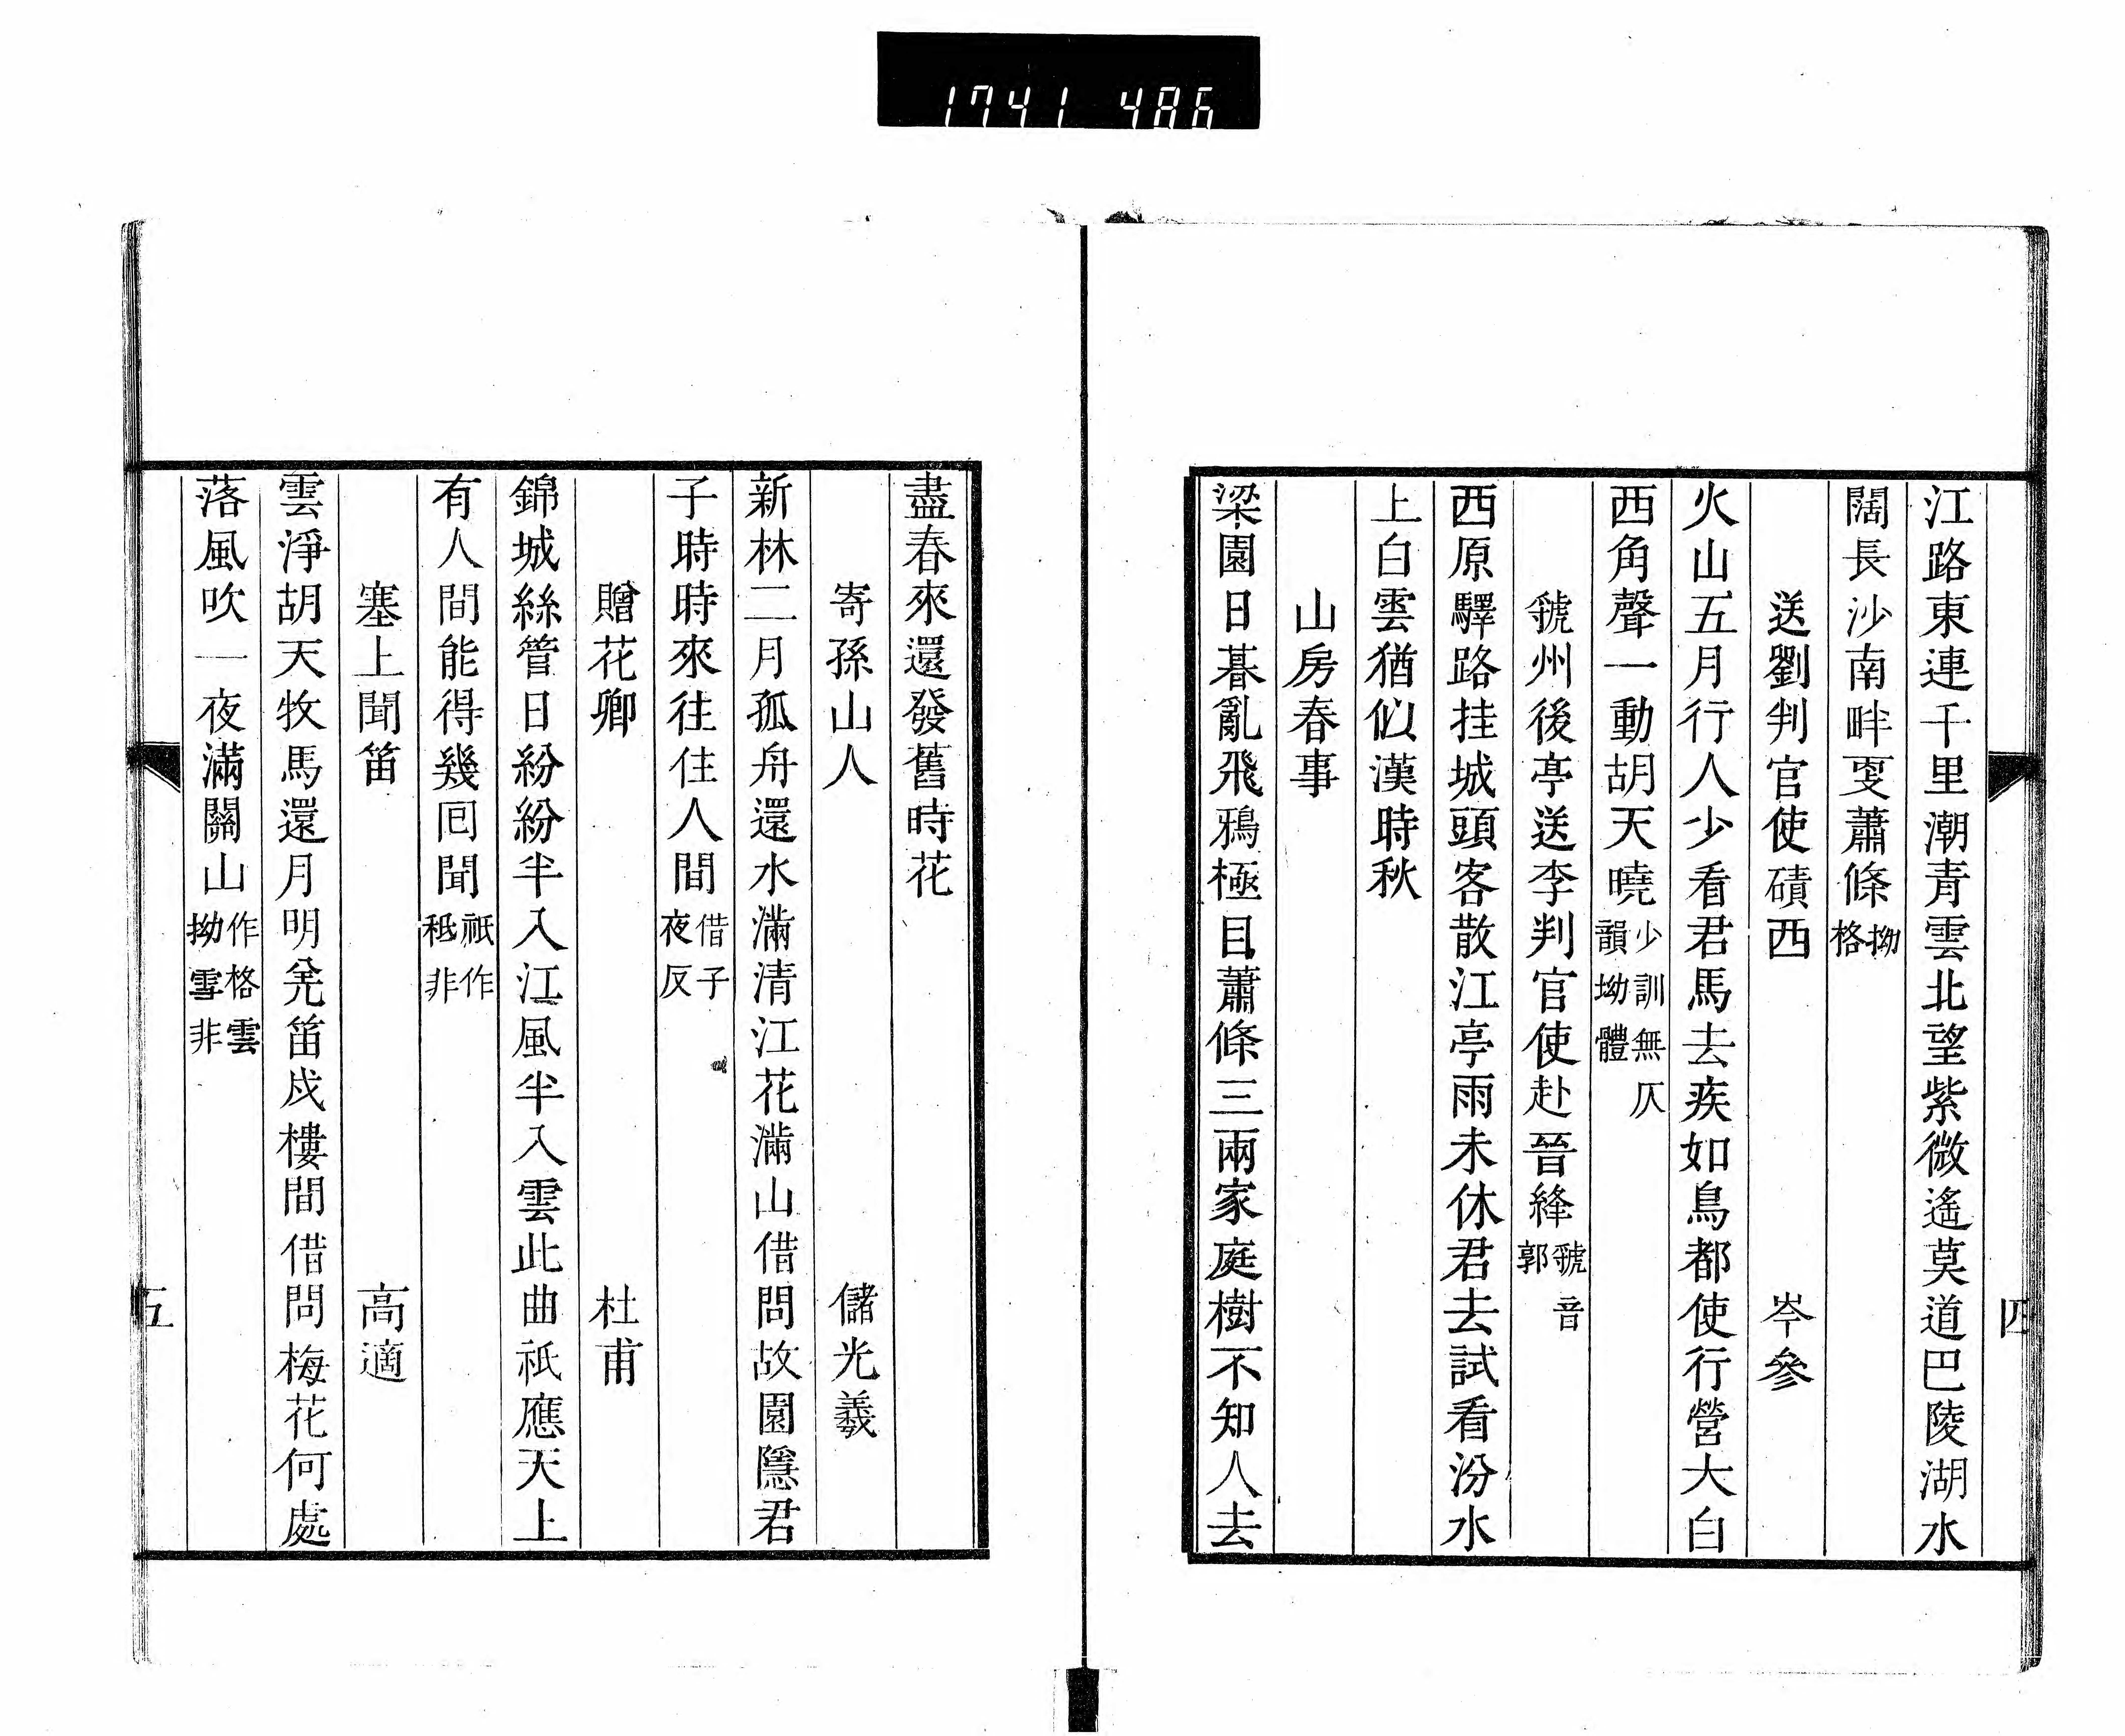 1741 486
四
江路東連千里潮青雲北望紫微遙莫道巴陵湖水
闊長沙南畔叓蕭條拗格
送劉判官使磧西　岑參
火山五月行人少看君馬去疾如鳥都使行營大白
西角聲一動胡天曉少訓無仄韻拗體
虢州後亭送李判官使赴晉絳虢音郭
西原驛路挂城頭客散江亭雨未休君去試看汾水
上白雲猶似漢時秋
山房春事
梁園日暮亂飛鴉極目蕭條三兩家庭樹不知人去
盡春來還發舊時花
寄孫山人　儲光羲
新林二月孤舟還水滿清江花滿山借問故園隱君
子時時來往住人間借子夜反
贈花卿　杜甫
錦城絲管日紛紛半入江風半入雲此曲祇應天上
有人間能得幾囘聞祇作秪非
塞上聞笛　高適
雲淨胡天牧馬還月明羌笛戍樓間借問梅花何處
落風吹一夜滿關山作格雲拗雪非
五